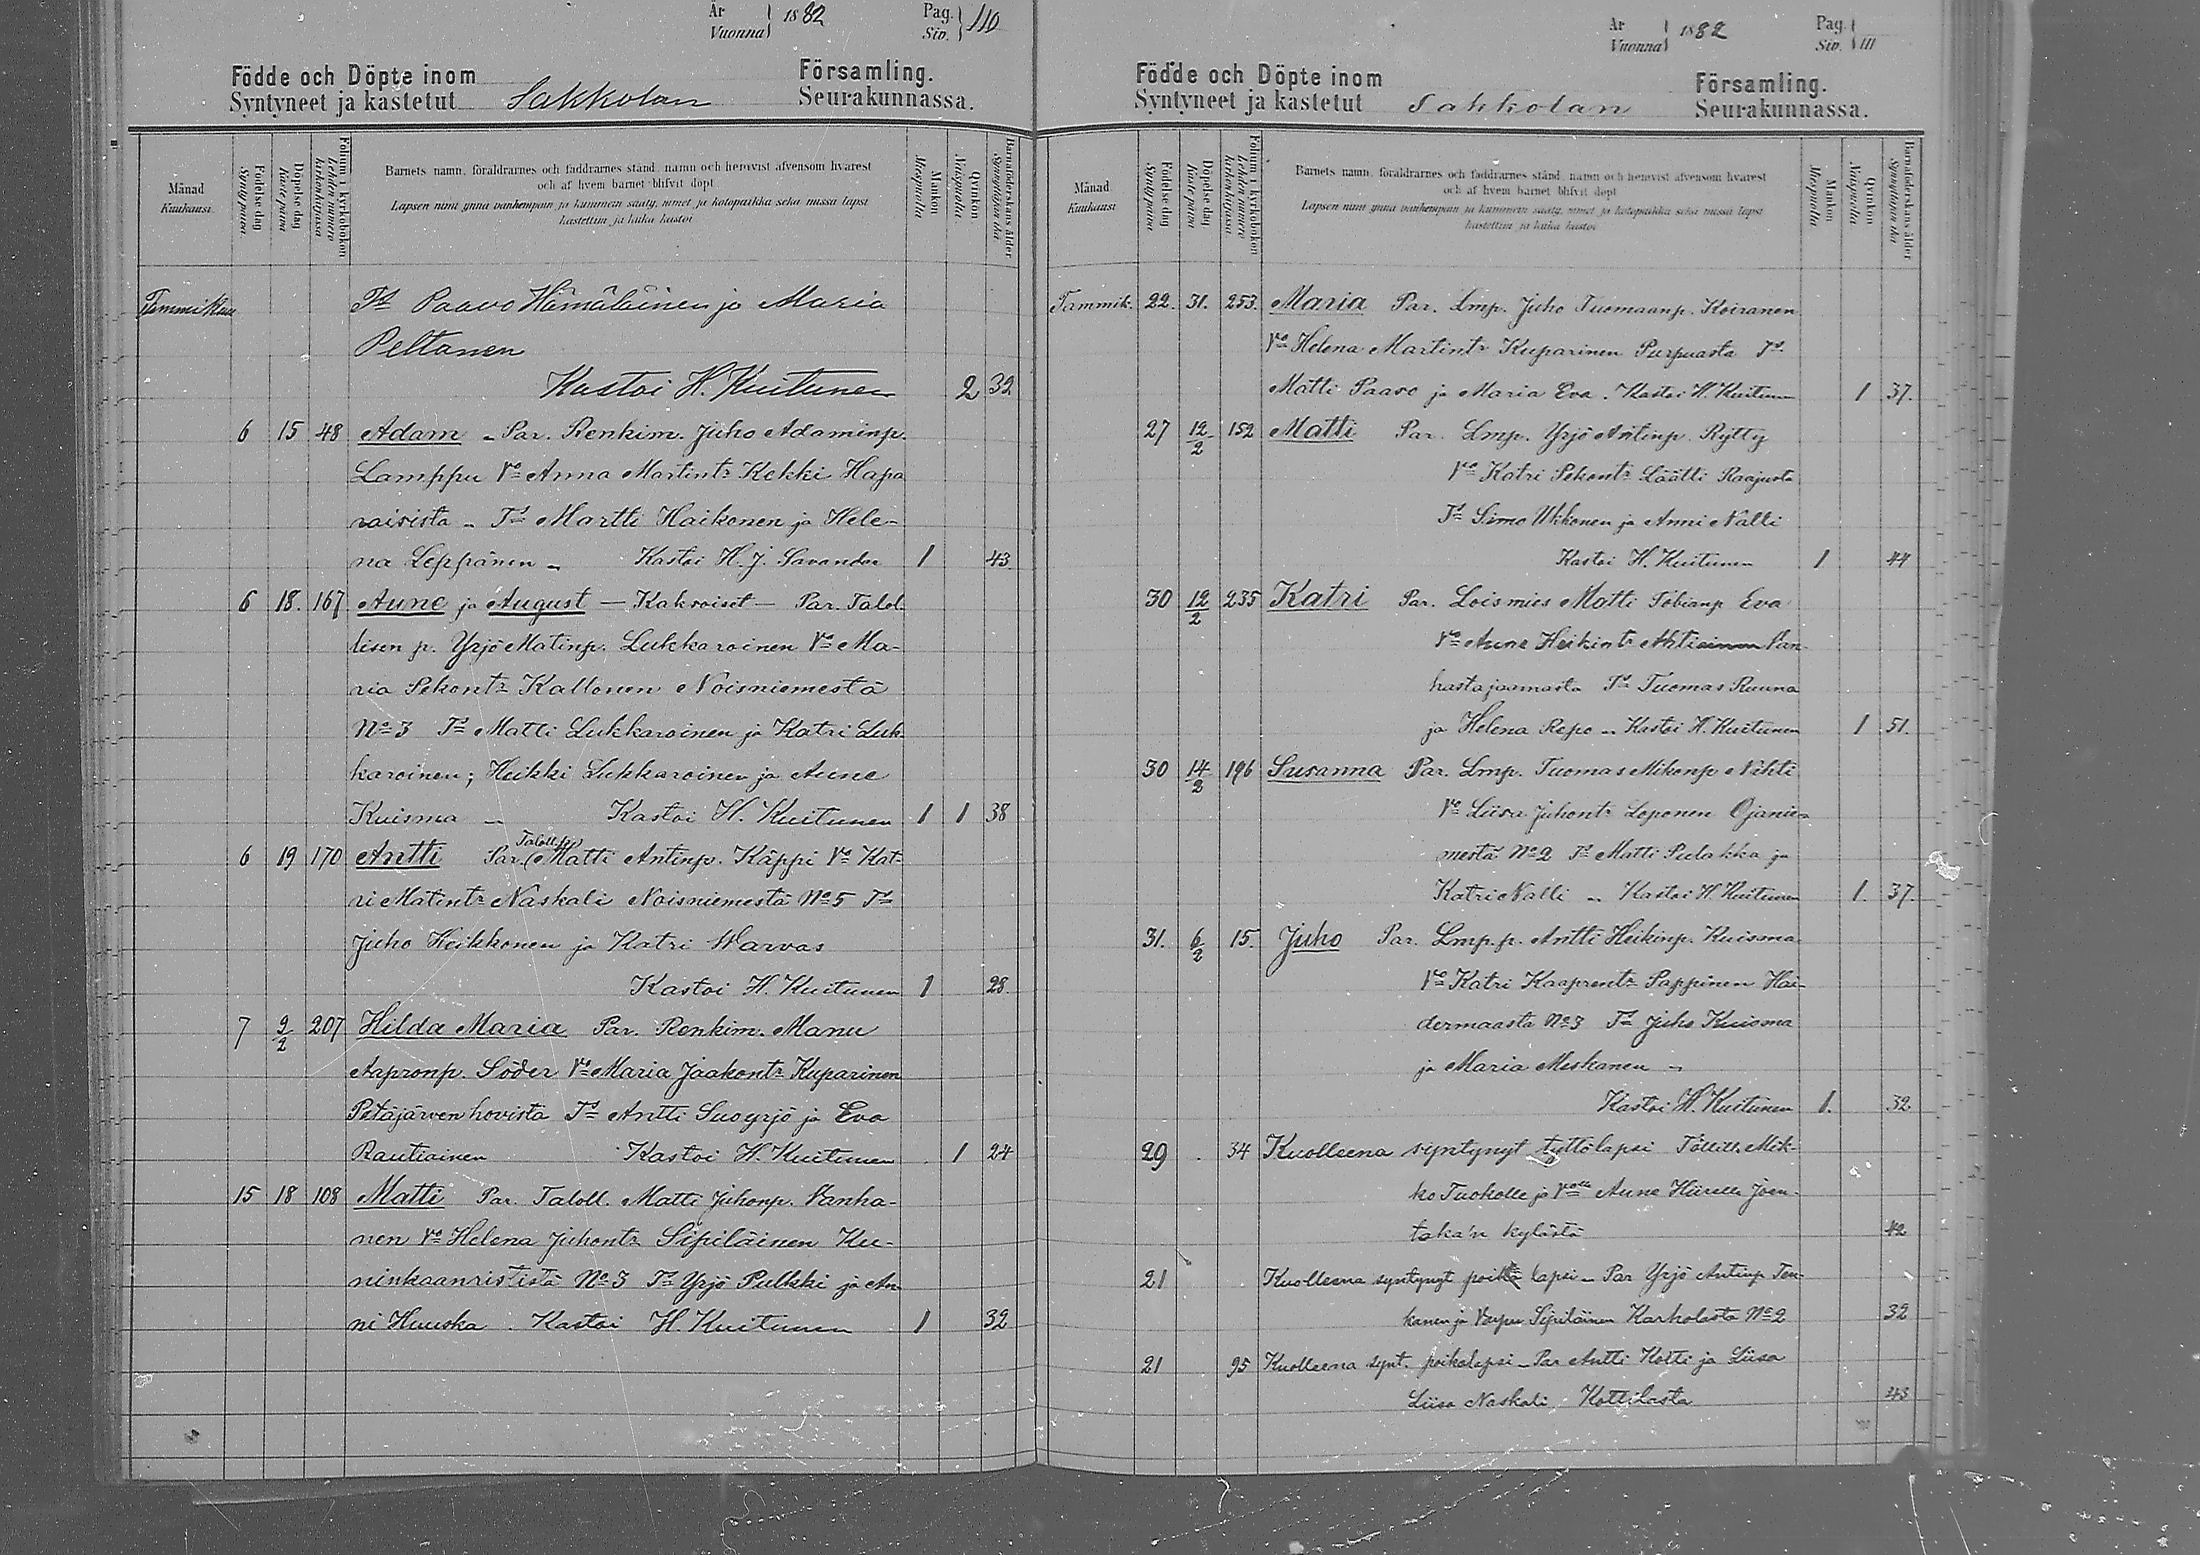 År Vuonna 1882 Pag. Siv. 110
Födde och Döpte inom Församling.
Syntyneet ja kastetut Sakkolan Seurakunnassa.
Månad Kuukausi
Födelsedag Syntypäivä
Döpelsedag Kastepäivä
Folium i kyrkoboken Lehden numero kirkonkirjassa
Barnets namn, föräldrarnes och faddrarnes stånd, namn och hemvist äfvensom hvarest
och af hvem barnet blifvit döpt
Lapsen nimi ynnä vanhempain ja kummein sääty, nimet ja kotopaikka sekä missä lapsi
kastettiin ja kuka kastoi
Mankön Miespuolia
Qvinkön Vaispuolia
Barnaföderskans ålder Synnyttäjän ikä
Tammikuu Tt Paavo Hämäläinen ja Maria
Peltanen
Kastoi H. Kuitunen 2 32
6 15 48 Adam - Par. Renkim. Juho Adaminp.
Lamppu Vo Anna Martintr Kekki Hapa
raisista - Tt Martti Haikonen ja Hele-
na Leppänen - Kastoi H. J. Savander 1 43
6 18. 167 Aune ja August — Kaksoiset — Par. Talol.
lisen p. Yrjö Matinp. Lukkaroinen Vo Ma-
ria Pekontr Kallonen Noisniemestä
No 3 Tt Matti Lukkaroinen ja Katri Luk
karoinen; Heikki Lukkaroinen ja Aune
Kuisma - Kastoi H. Kuitunen 1 1 38
6 19 170 Antti Par. Taloll. p. Matti Antinp. Käppi Vo Kat-
ri Matintr Naskali Noisniemestä No 5 Tt
Juho Heikkonen ja Katri Warvas
Kastoi H. Kuitunen 1 28
7 9/2 207 Hilda Maria Par. Renkim. Manu
Aapronp. Söder Vo Maria Jaakontr Kuparinen
Petäjärven hovista Tt Antti Suoyrjö ja Eva
Rautiainen Kastoi H. Kuitunen 1 24
15 18 108 Matti Par. Taloll. Matti Juhonp. Vanha-
nen Vo Helena Juhontr Sipiläinen Ku-
ninkaanrististä No 3 Tt Yrjö Pulkki ja An
ni Huuska. Kastoi H. Kuitunen 1 32
År Vuonna 1882 Pag. Siv. 111
Födde och Döpte inom Församling.
Syntyneet ja kastetut Sakkolan Seurakunnassa.
Månad Kuukausi
Födelsedag Syntypäivä
Döpelsedag Kastepäivä
Folium i kyrkoboken Lehden numero kirkonkirjassa
Barnets namn, föräldrarnes och faddrarnes stånd, namn och hemvist äfvensom hvarest
och af hvem barnet blifvit döpt
Lapsen nimi ynnä vanhempain ja kummein sääty, nimet ja kotopaikka sekä missä lapsi
kastettiin ja kuka kastoi
Mankön Miespuolia
Qvinkön Vaispuolia
Barnaföderskans ålder Synnyttäjän ikä
Tammik. 22. 31. 253. Maria Par. Lmp. Juho Tuomaanp. Koiranen
Vo Helena Martintr Kuparinen Purpuasta Tt
Matti Paavo ja Maria Eva. Kastoi H. Kuitunen 1 37.
27 12/2 152 Matti Par. Lmp. Yrjö Antinp. Rytty
Vo Katri Pekontr Läätti Raajusta
Tt Simo Ukkonen ja Anni Nalli
Kastoi H. Kuitunen 1 44
30 12/2 235 Katri Par. Loismies Matti Tobianp Eva
Vo Aune Heikintr Ahtiainen Pan-
hastajaamasta Tt Tuomas Ruuna
ja Helena Repo - Kastoi H. Kuitunen 1 51.
30 14/2 196 Susanna Par. Lmp. Tuomas Mikonp Nihti
Vo Liisa Juhontr Loponen Ojanie-
mestä No 2 Tt Matti Pulakka ja
Katri Nalli - Kastoi H. Kuitunen 1. 37.
31. 6/2 15. Juho Par. Lmp. p. Antti Heikinp. Kuisma
Vo Katri Kaaprentr Pappinen Hai-
dermaasta No 3 Tt Juho Kuisma
ja Maria Meskanen -
Kastoi H. Kuitunen 1. 32
29 . 34 Kuolleena syntynyt tyttölapsi Töllille Mik-
ko Tuokolle ja Volle Aune Hiirelle Joen-
taka'n kylästä 42
21 Kuolleena syntynyt poika lapsi - Par Yrjö Antinp Ton-
kanen ja Vappu Sipiläinen Karholasta No 2 32
21 95 Kuolleena synt. poikalapsi - Par Antti Kotti ja Liisa
Liisa Naskali Kottilasta 43